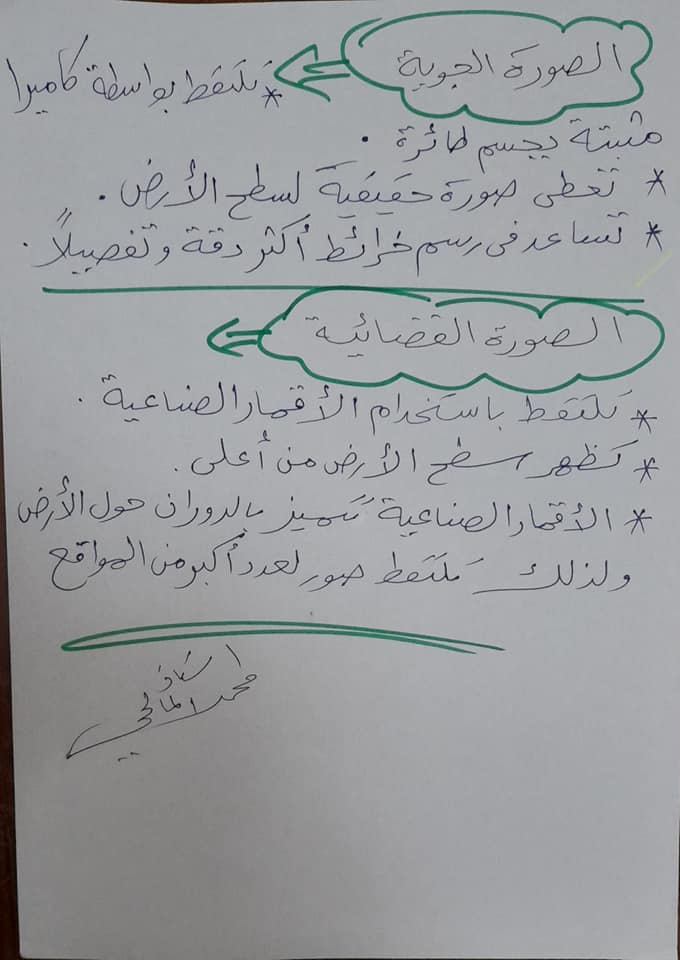 الصورة الجوية
* تلتقط بواسطة كاميرا
مثبتة بجسم طائرة .
* تعطى صورة حقيقية لسطح الأرض .
* تساعد فى رسم خرائط أكثر دقة وتفصيلاً .
الصورة الفضائية
* تلتقط باستخدام الأقمار الصناعية .
* تظهر سطح الأرض من أعلى .
* الأقمار الصناعية تتميز بالدوران حول الأرض
ولذلك تلتقط صور لعدد أكبر من المواقع
محمد